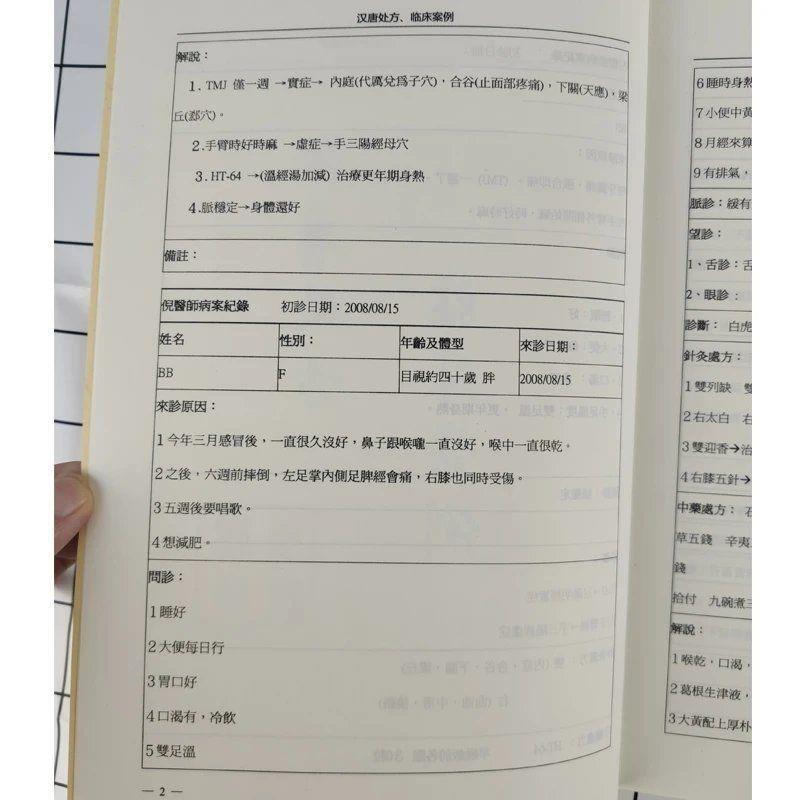 汉唐处方、临床案例
解說：
1. TMJ 僅一週 →實症→ 內庭(代厲兌爲子穴)，合谷(止面部疼痛)，下關(天應)，梁
丘(郄穴)。
2.手臂時好時麻 →虛症→手三陽經母穴
3. HT-64 →(溫經湯加減) 治療更年期身熱
4.脈穩定→身體還好
備註：
倪醫師病案紀錄 初診日期：2008/08/15
姓名 性別： 年齡及體型 來診日期：
BB F 目視約四十歲 胖 2008/08/15
來診原因：
1今年三月感冒後，一直很久沒好，鼻子跟喉嚨一直沒好，喉中一直很乾。
2之後，六週前摔倒，左足掌內側足脾經會痛，右膝也同時受傷。
3五週後要唱歌。
4想減肥。
問診：
1睡好
2大便每日行
3胃口好
4口渴有，冷飲
5雙足溫
— 2 —
6睡時身熱
7小便中黃
8月經來算
9有排氣，
脈診：緩有
望診：
1、舌診：舌
2、眼診：
診斷： 白虎
針灸處方：
1雙列缺 雙
2右太白 右
3雙迎香→治
4右膝五針→
中藥處方： 石
草五錢 辛夷
錢
拾付 九碗煮三
解說：
1喉乾，口渴，
2葛根生津液，
3大黃配上厚朴